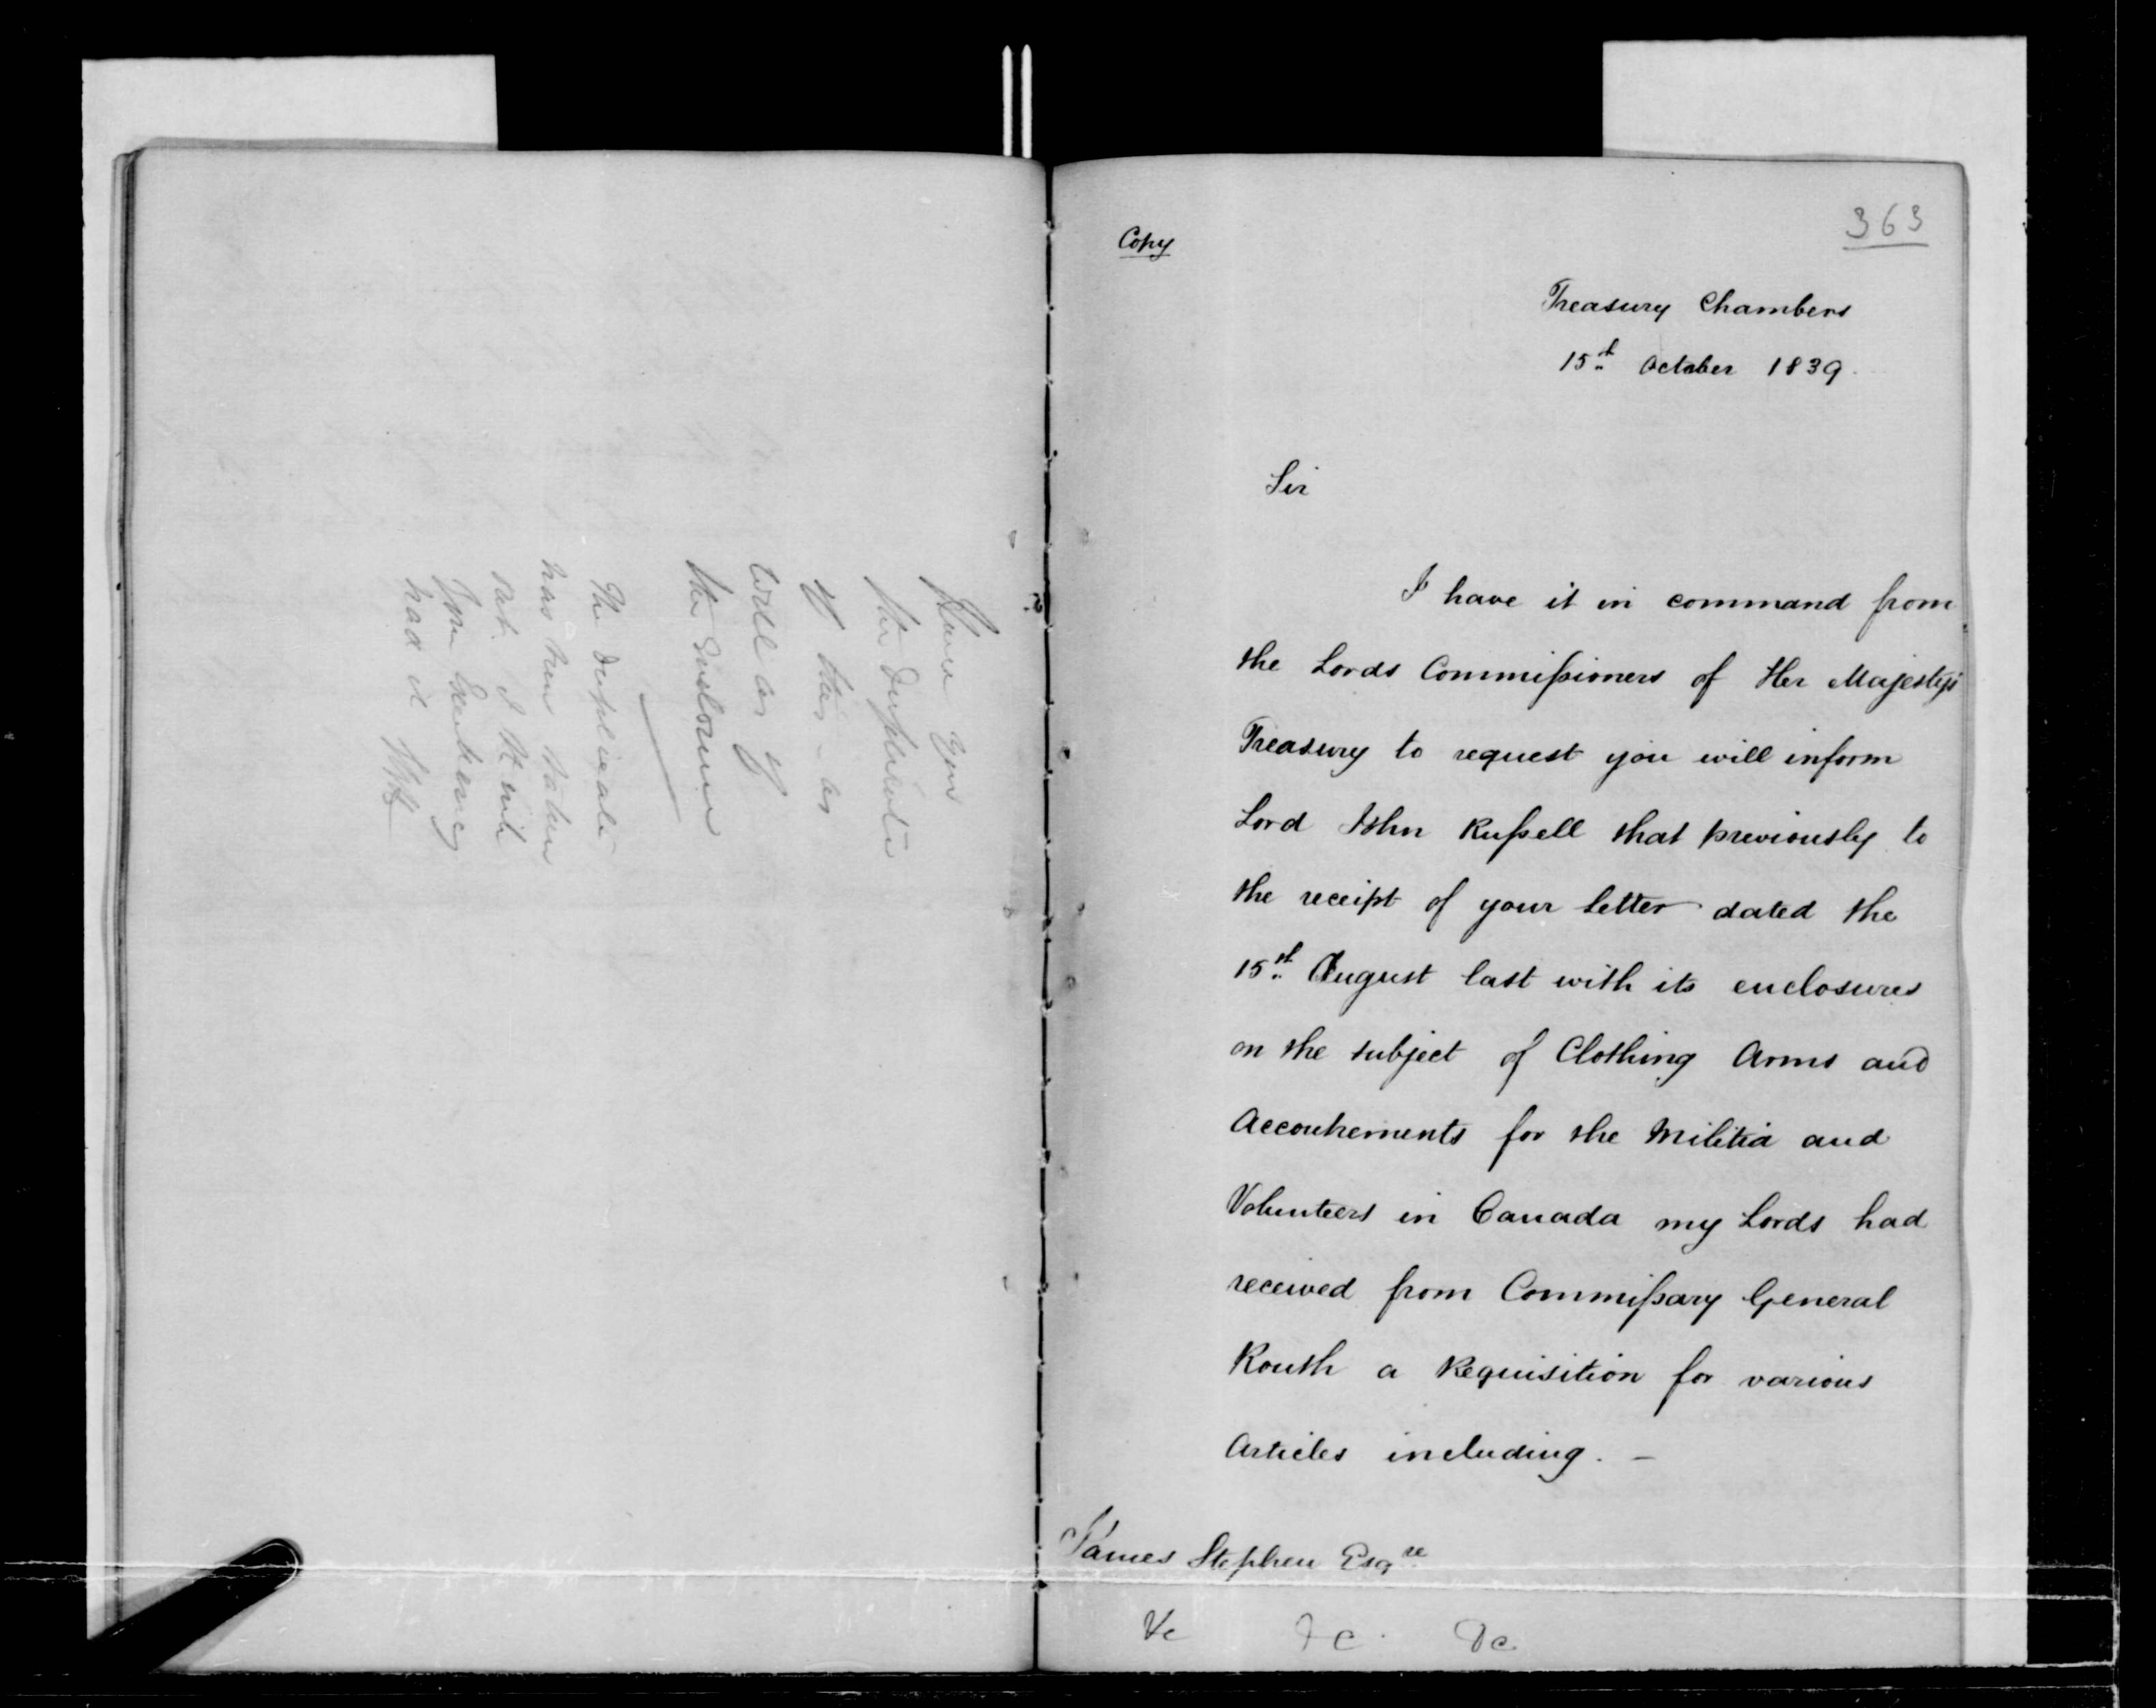 Have you
the Duplicate
of this - as
well as of
the Enclosure
The duplicate
has been taken
out. I think
Your Excellency
had it
Copy
363
Treasury Chambers
15th October 1839.
Sir
I have it in command from
the Lords Commissioners of Her Majesty's
Treasury to request you will inform
Lord John Russell that previously to
the receipt of your letter dated the
15th August last with its enclosures
on the subject of Clothing Arms and
Accoutrements for the Militia and
Volunteers in Canada my Lords had
received from Commissary General
Routh a Requisition for various
Articles including. —
James Stephen Esqre
&c &c. &c.